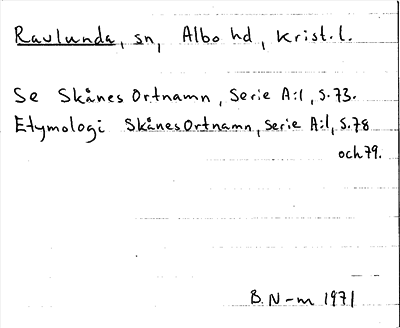 Ravlunda, sn, Albo hd, Krist. l.
Se Skånes Ortnamn, Serie A:1, S. 73.
Etymologi Skånes Ortnamn, Serie A:1, S. 78
och 79.
B. N-m 1971